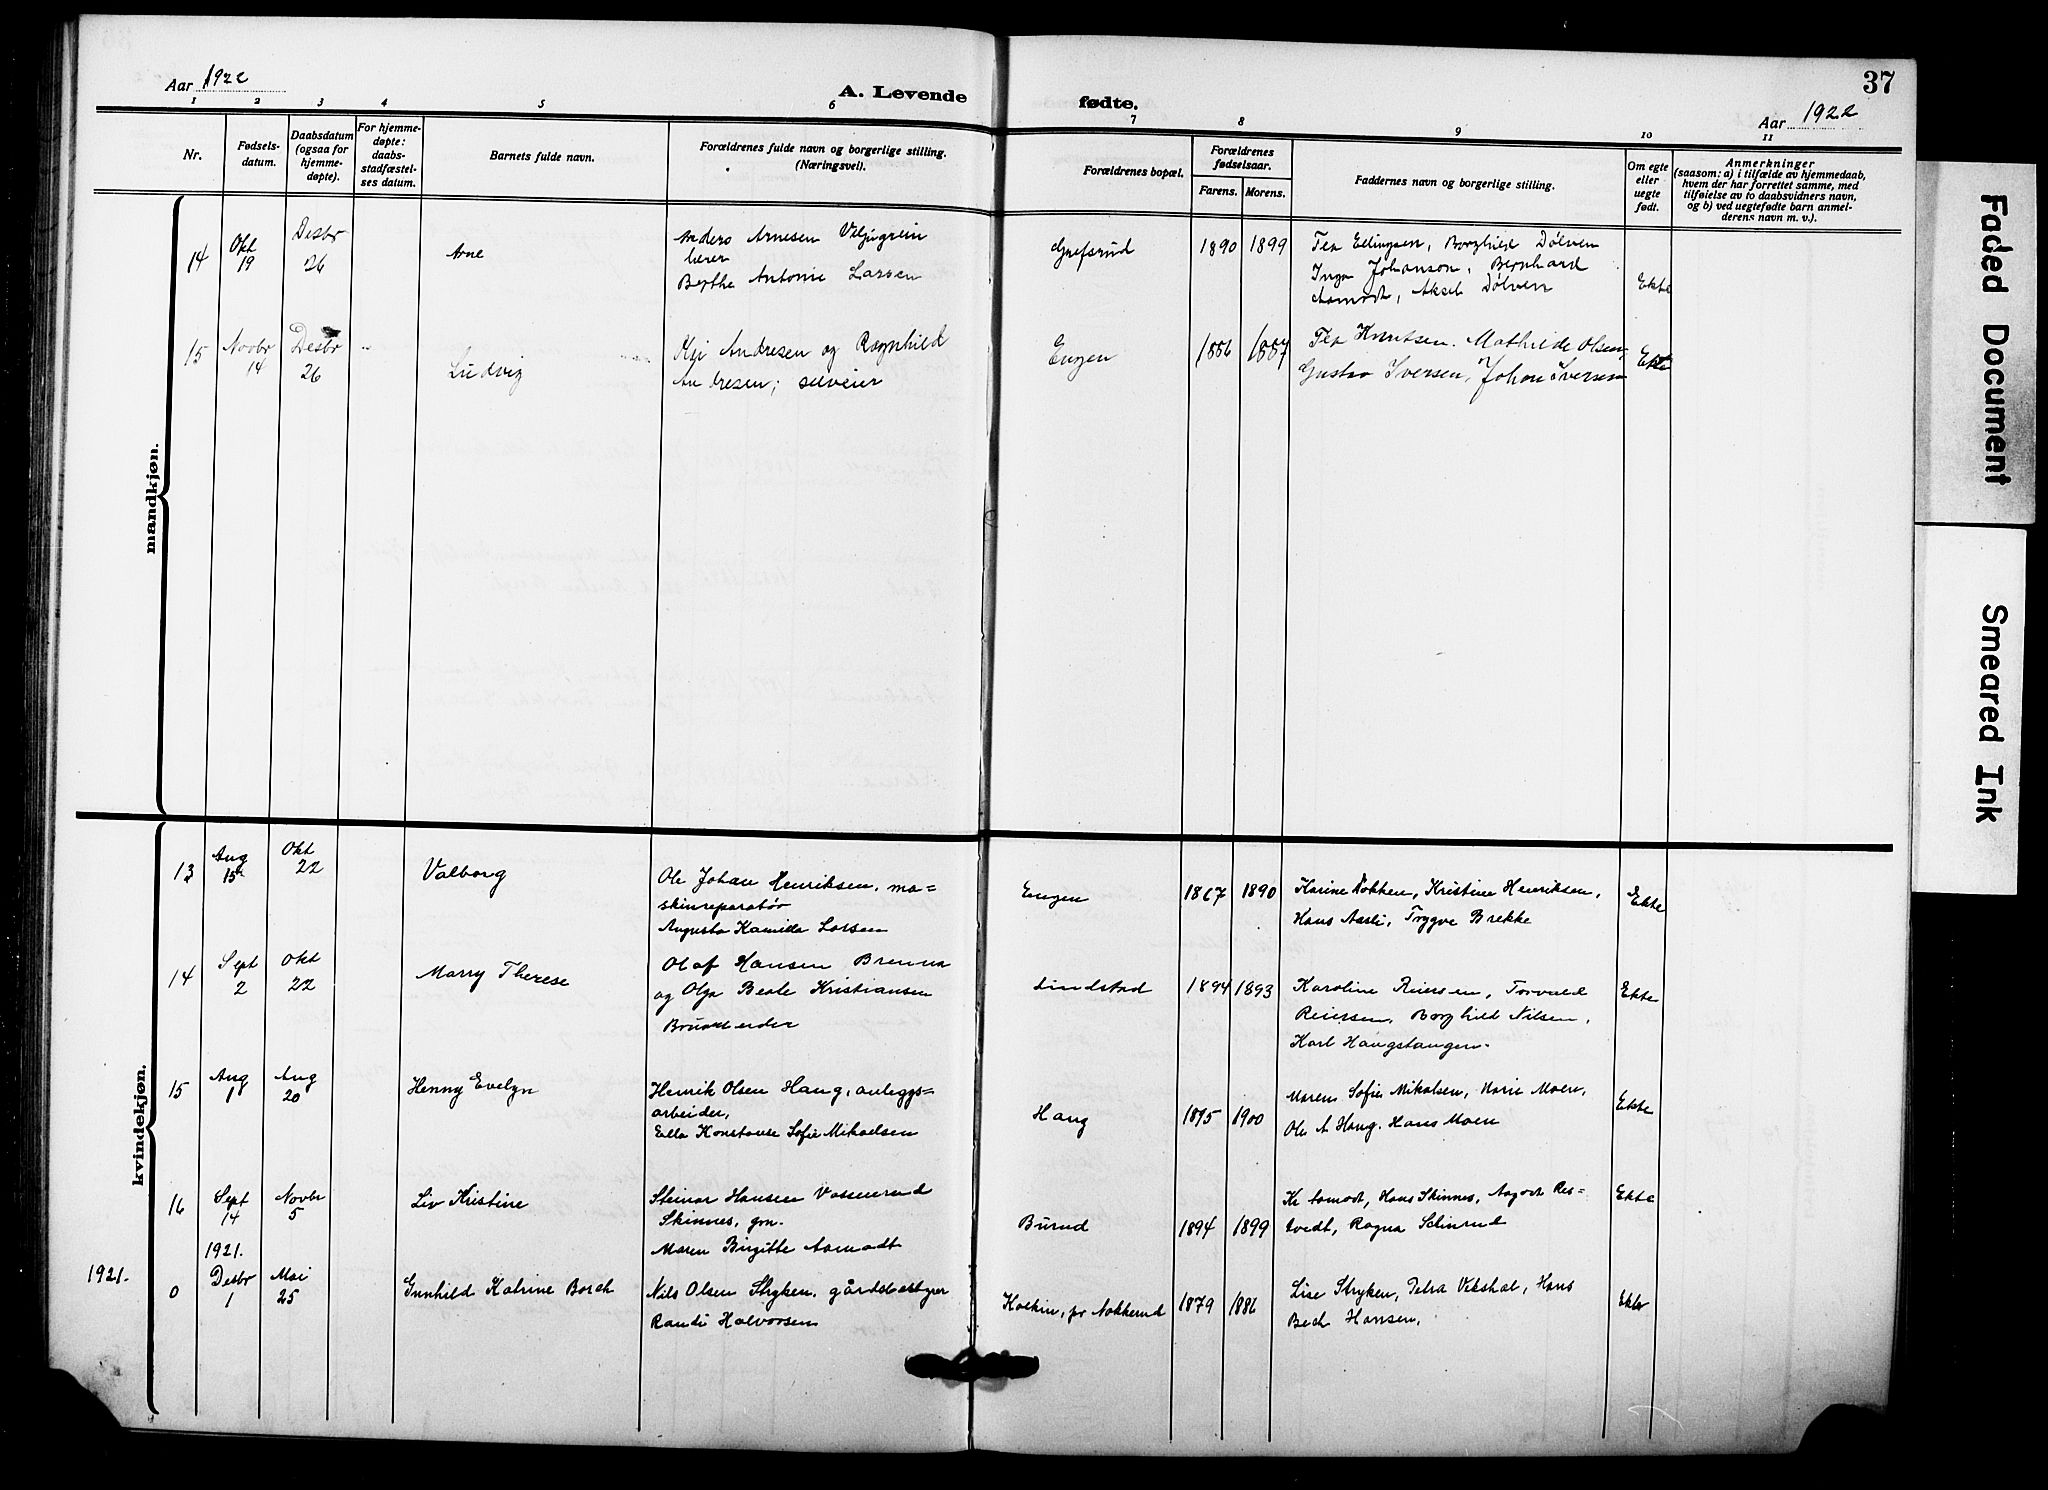 Aar 1922
A. Levende
fødte.
37
Aar 1922
1 2 3 4 5 6 7 8 9 10 11
Nr.
Fødsels-
datum.
Daabsdatum
(ogsaa for
hjemme-
døpte).
For hjemme-
døpte:
daabs-
stadfæstel-
ses datum.
Barnets fulde navn.
Forældrenes fulde navn og borgerlige stilling.
(Næringsvei).
Forældrenes bopæl.
Forældrenes
fødselsaar.
Farens. Morens.
Faddernes navn og borgerlige stilling.
Om egte
eller
uegte
født.
Anmerkninger
(saasom: a) i tilfælde av hjemmedaab,
hvem der har forrettet samme, med
tilføielse av to daabsvidners navn,
og b) ved uegtefødte barn anmel-
derens navn m. v.).
mandkjøn.
14
Okt
19
Desbr
26
Arne
Anders Arnesen
lærer
Berthe Antonie Larsen
1890 1899
Tea Ellingsen, Borghild Dølven
Inga Johanson, Bernhard
Aamodt, Aksel Dølven
Ekte
15
Novbr
14
Desbr
26
Ludvig
Andresen og Ragnhild
Andresen; selveier
Engen
1886 1887
Tea Knutsen. Mathilde Olsen,
Gustav Iversen, Johan Iversen
Ekte
kvindekjøn.
13
Aug
15
Okt
22
Valborg
Ole Johan Henriksen, ma=
skinreparatør
Augusta Kamilla Larsen
Engen
1867 1890
Karine Nokken, Kristine Henriksen,
Hans Aasli, Tryggve Brekke
Ekte
14
Sept
2
Okt
22
Marry Therese
Olaf Hansen Brenna
og Olga Beate Kristiansen
Lindstad
1894 1893
Karoline Reiersen, Torvald
Reiersen, Borghild Nilsen,
Karl Haugstangen.
Ekte
15
Aug
1
Aug
20
Henny Evelyn
Henrik Olsen Haug, anleggs=
arbeider,
Ella Konstanse Sofie Mikaelsen
Haug
1895 1900
Maren Sofie Mikalsen, Marie Moen,
Ole A Haug. Hans Moen
Ekte
16
Sept
14
Novbr
5
Liv Kristine
Steinar Hansen Vassenrud
Skinnes, grn.
Maren Birgitte Aamodt
Burud
1894 1899
Kr Aamodt, Hans Skinnes, Aagot Res=
tvedt, Ragna Schinrud
Ekte
1921.
0
1921.
Desbr
1
Mai
25
Gunhild Katrine Borch
Nils Olsen Stryken, gårdsbestyrer
Randi Halvorsen
pr Nokkerud
1879 1886
Lise Stryken, Petra Vekshal, Hans
Bech Hansen,
Ekte
Faded Document
Smeared Ink